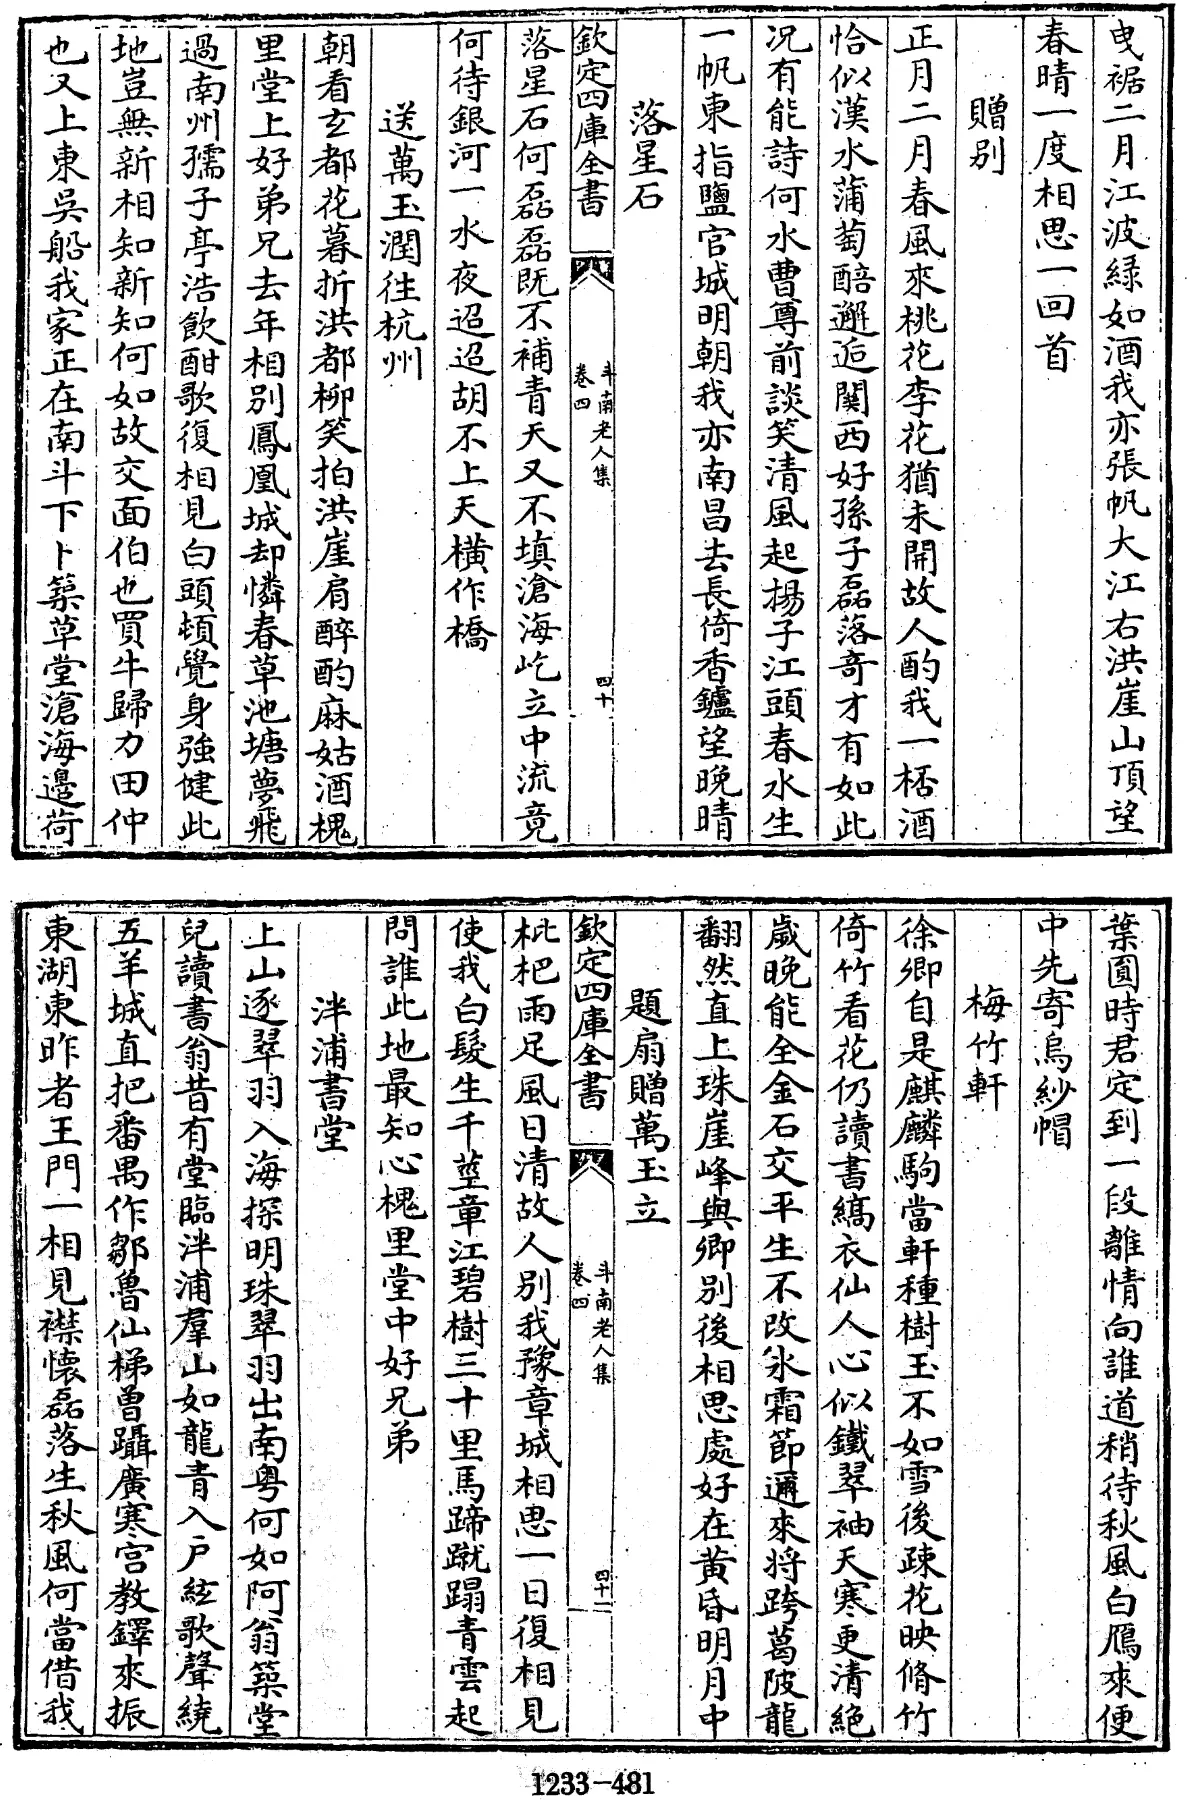 曵裾二月江波緑如酒我亦張帆大江右洪崖山頂望
春晴一度相思一回首
贈别
正月二月春風來桃花李花猶未開故人酌我一桮酒
恰似漢水蒲萄醅邂逅關西好孫子磊落奇才有如此
況有能詩何水曹尊前談笑清風起揚子江頭春水生
一帆東指鹽官城明朝我亦南昌去長倚香鑪望晚晴
落星石
欽定四庫全書
斗南老人集
卷四
四十
落星石何磊磊既不補青天又不填滄海屹立中流竟
何待銀河一水夜迢迢胡不上天横作橋
送萬玉潤往杭州
朝看玄都花暮折洪都柳笑拍洪崖肩醉酌麻姑酒槐
里堂上好弟兄去年相别鳳凰城却憐春草池塘夢飛
過南州孺子亭浩飲酣歌復相見白頭頓覺身強健此
地豈無新相知新知何如故交面伯也買牛歸力田仲
也又上東吳船我家正在南斗下卜築草堂滄海邉荷
葉圓時君定到一段離情向誰道稍待秋風白鴈來便
中先寄烏紗帽
梅竹軒
徐卿自是麒麟駒當軒種樹玉不如雪後疎花映脩竹
倚竹看花仍讀書縞衣仙人心似鐵翠袖天寒更清絶
歲晚能全金石交平生不改氷霜節邇來将跨葛陂龍
翻然直上珠崖峰與卿别後相思處好在黄昏明月中
題扇贈萬玉立
欽定四庫全書
斗南老人集
卷四
四十一
枇杷雨足風日清故人别我豫章城相思一日復相見
使我白髮生千莖章江碧樹三十里馬蹄蹴蹋青雲起
問誰此地最知心槐里堂中好兄弟
泮浦書堂
上山逐翠羽入海探明珠翠羽出南粤何如阿翁築堂
兒讀書翁昔有堂臨泮浦羣山如龍青入户絃歌聲繞
五羊城直把番禺作鄒魯仙梯曽躡廣寒宫教鐸來振
東湖東昨者王門一相見襟懷磊落生秋風何當借我
1233-481